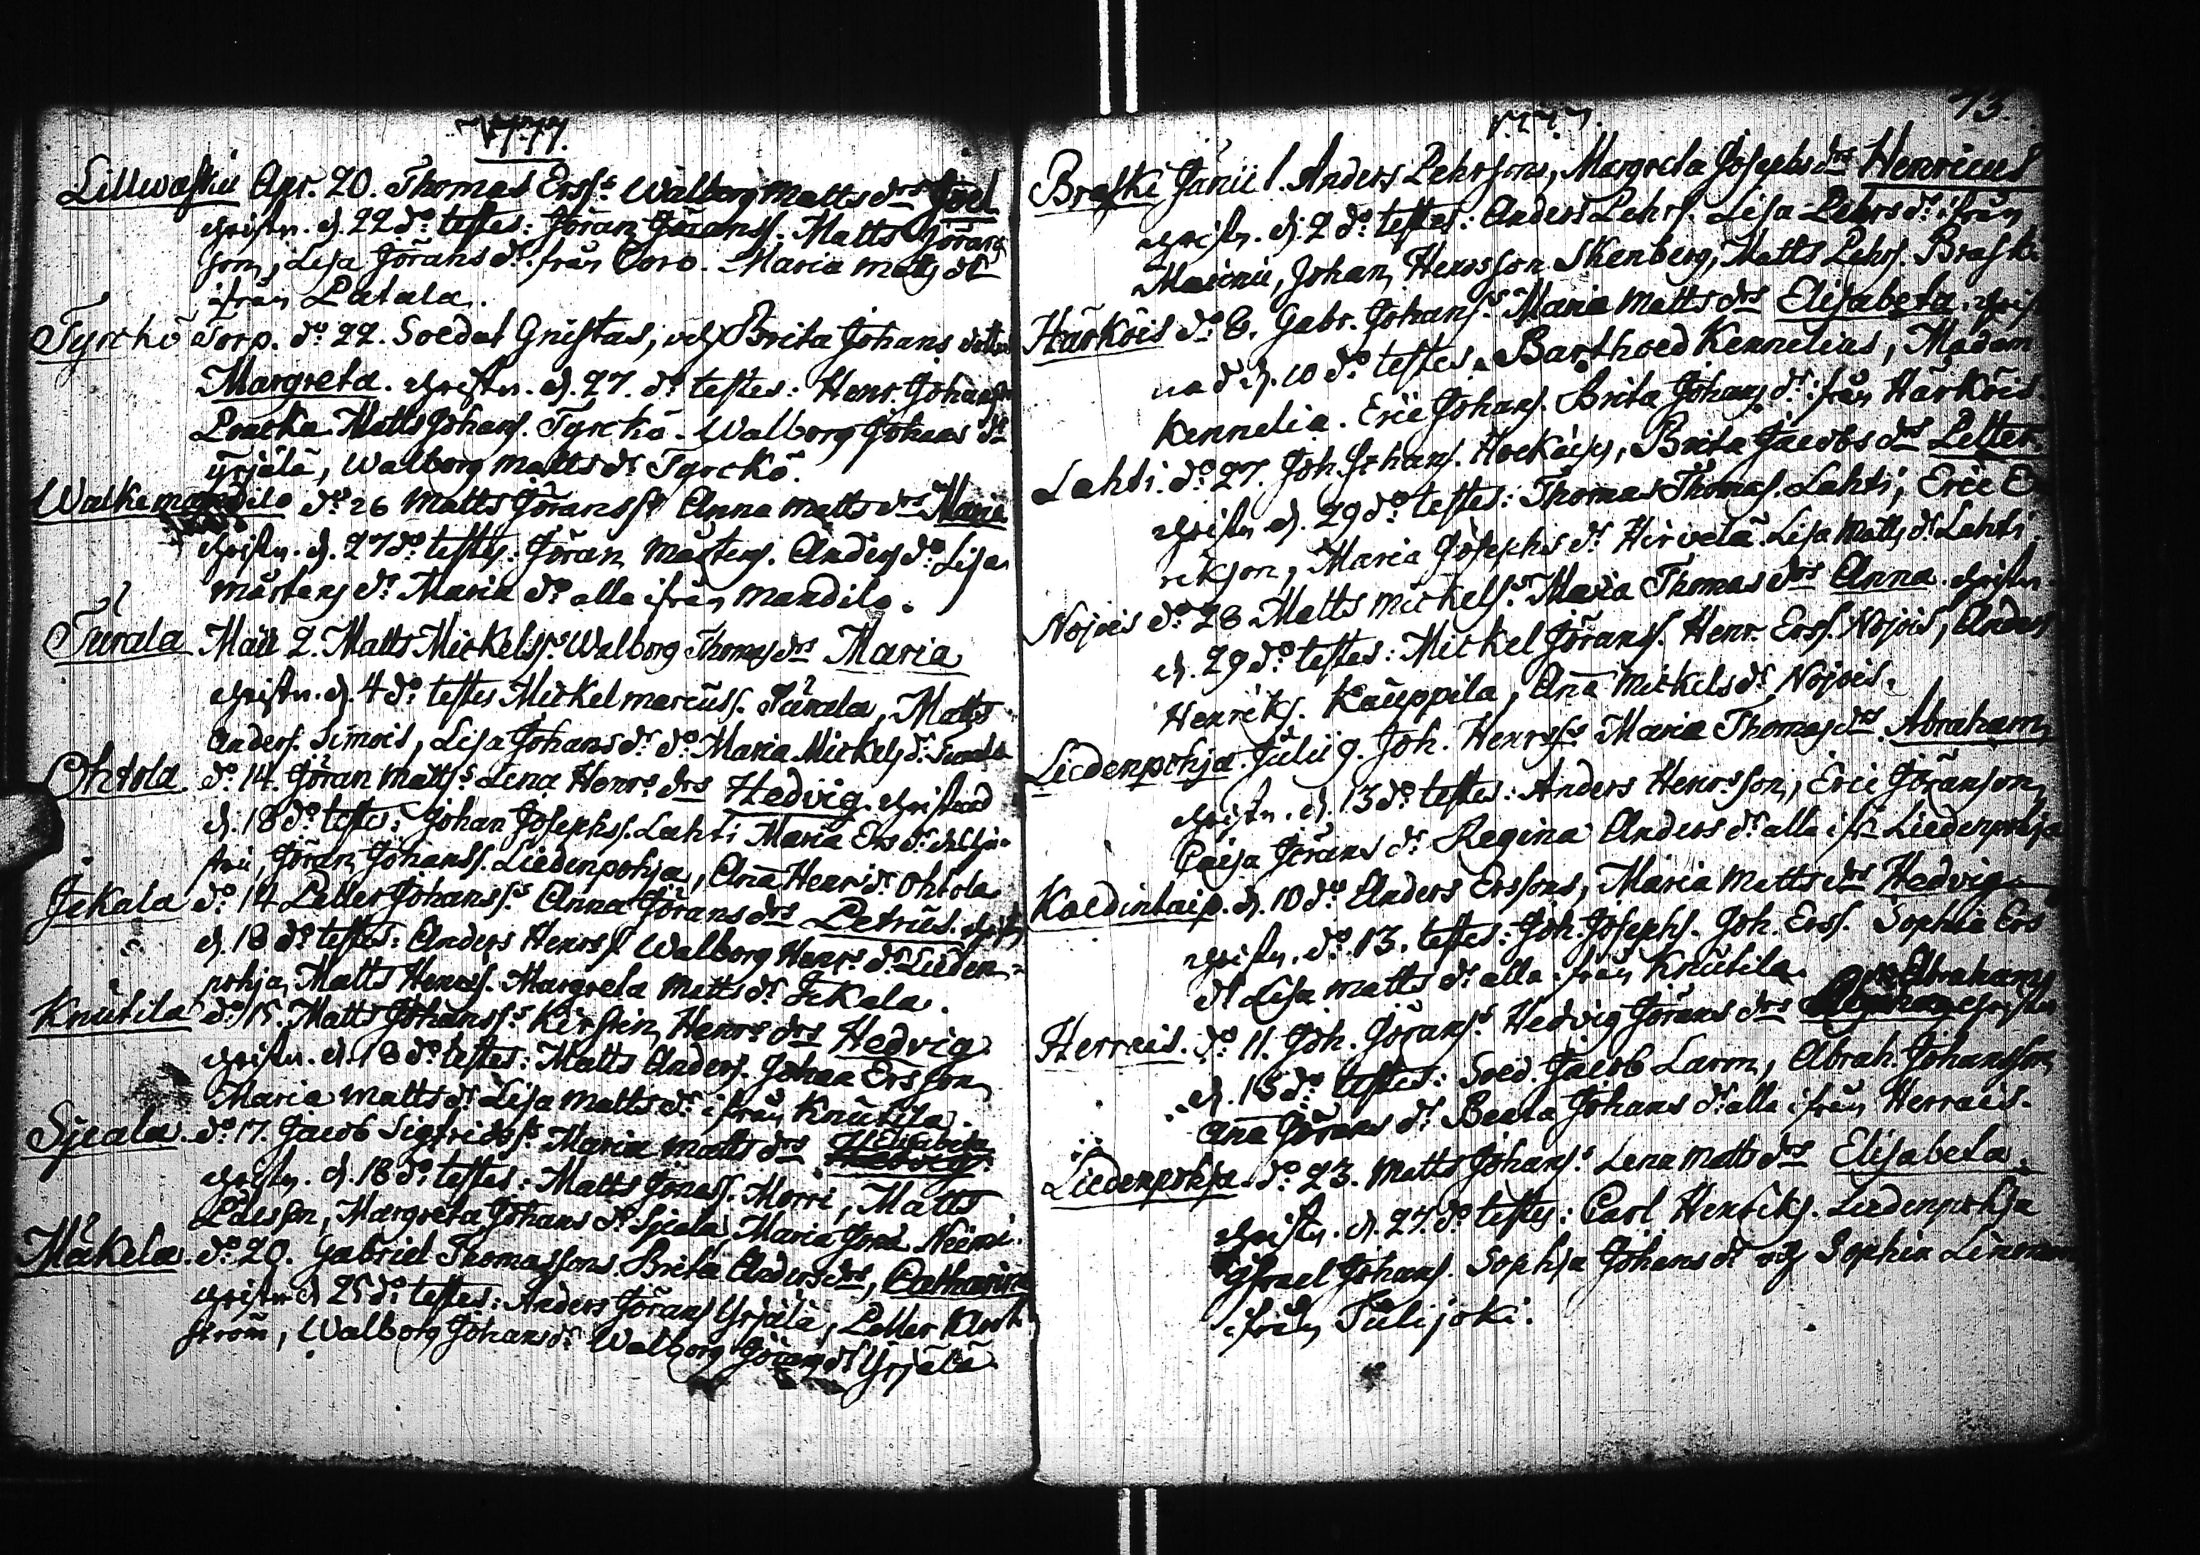 1777.
Lillwastiu Apr. 20. Thomas Erss:s Walborg Matts drs Joel
christn. d. 22 do testes: Jöran Jöranss. Matts Jörans
son, Lisa Jörans dr från Ooro. Maria Matts dr
ifrån Patala.
Tyrckö Torp. do 22. Soldat Gnistas, och Brita Johans
Margreta. christn. d. 27. do testes: Henr. Johans
Matts Johans. Tyrckö. Walborg Johans dr
yrjälä, Walborg Matts dr Tyrckö.
Walkemandila do 26 Matts Jöranss:s Anna Matts drs Maria
christn. d. 27 do testes: Jöran Mårtens. Anders do Lisa
Mårtens dr Maria do alla ifrån Mandila.
Turala Maii 2. Matts Mickelss:s Walborg Thomas drs Maria
christn. d. 4 do testes Mickel Marcuss. Turala, Matts
Anders. Simois, Lisa Johans dr do Maria Mickels dr Turala
Ohtola do 14. Jöran Matts:s Lena Henrs drs Hedvig. christnad
d. 18 do testes: Johan Josephss. Lahti Maria Ers dr
Jöran Johanss. Liedenpohja, Ana Henrs dr Ohtola
Jekala do 14 Petter Johanss:s Anna Jörans drs Petrus. christn
d. 18 do testes: Anders Henrss Walborg Henrs dr Lieden-
pohja, Matts Henrss. Margreta Matts dr Jekala.
Knutila do 15. Matts Johanss:s Kirstin Henrs drs Hedvig
christn. d. 18 do testes: Matts Anders. Johan Ersson
Maria Matts dr Lisa Matts dr ifrån Knutila.
Sjeala. do 17. Jacob Sigfridss:s Maria Matts drs Elisabeta
christn. d. 18 do testes: Matts Jonass. Morri, Matts
Pålsson, Margreta Johans dr Sjeala, Maria Niemi.
Mäkela. do 20. Gabriel Thomassons. Brita Anders drs, Catharina
christn d. 25 do testes: Anders Jörans Yrjälä, Petter
ström, Walborg Johans dr Walborg Jörans dr Yrjälä
1777.
73.
Braski Junii 1. Anders Pehrsons, Margreta Josephs drs Henricus
christn. d. 2 do testes: Anders Pehrs. Lisa Pehrs dr ifrån
Johan Henrsson Skenberg, Matts Pehrs. Braski
Härköis do 6. Gabr. Johans:s Maria Matts drs Elisabeta. christ
nad d. 10 do testes. Barthold Kennelius, Madam
Kennelia. Eric Johans. Brita Johans dr ifrån Härköis.
Lahti. do 27. Joh. Johans. Brita Jacobs drs Petter.
christn d. 29 do testes: Thomas Thomas. Lahti, Eric E
rikson, Maria Josephs dr Hirvelä. Lisa Matts dr Lahti.
Nojois do 28 Matts Mickels:s Maria Thomas drs Anna. christn
d. 29 do testes: Mickel Jörans. Henr. Erss. Nojois, Anders
Henriks. Kauppila, Ana Mickels dr Nojois.
Liedenpohja. Julii 9. Joh. Henrss:s Maria Thomas drs Abraham
christn. d. 13 do testes: Anders Henrsson, Eric Jöranson,
Caisa Jörans dr Regina Anders dr alla ifr. Liedenpohja
Koldintaip. d. 10 do Anders Erssons, Maria Matts drs Hedvig
christn. do 13. testes: Joh. Josephs. Joh. Erss. Sophia Ers
dr Lisa Matts dr alla ifrån Knutila.
Abraham
Herrais. do 11. Joh. Jörans:s Hedvig Jörans drs christn
d. 13 do testes: Sold. Jacob Larm, Abrah. Johansson
Ana Jörans dr Beata Johans dr alla ifrån Herrais.
Liedenpohja. do 23. Matts Johans:s Lena Matts drs Elisabeta.
christn. d. 27. do testes: Carl Henriks. Liedenpohja
Israel Johans. Sophja Johans dr och Sophia
ifrån Tulijoki.